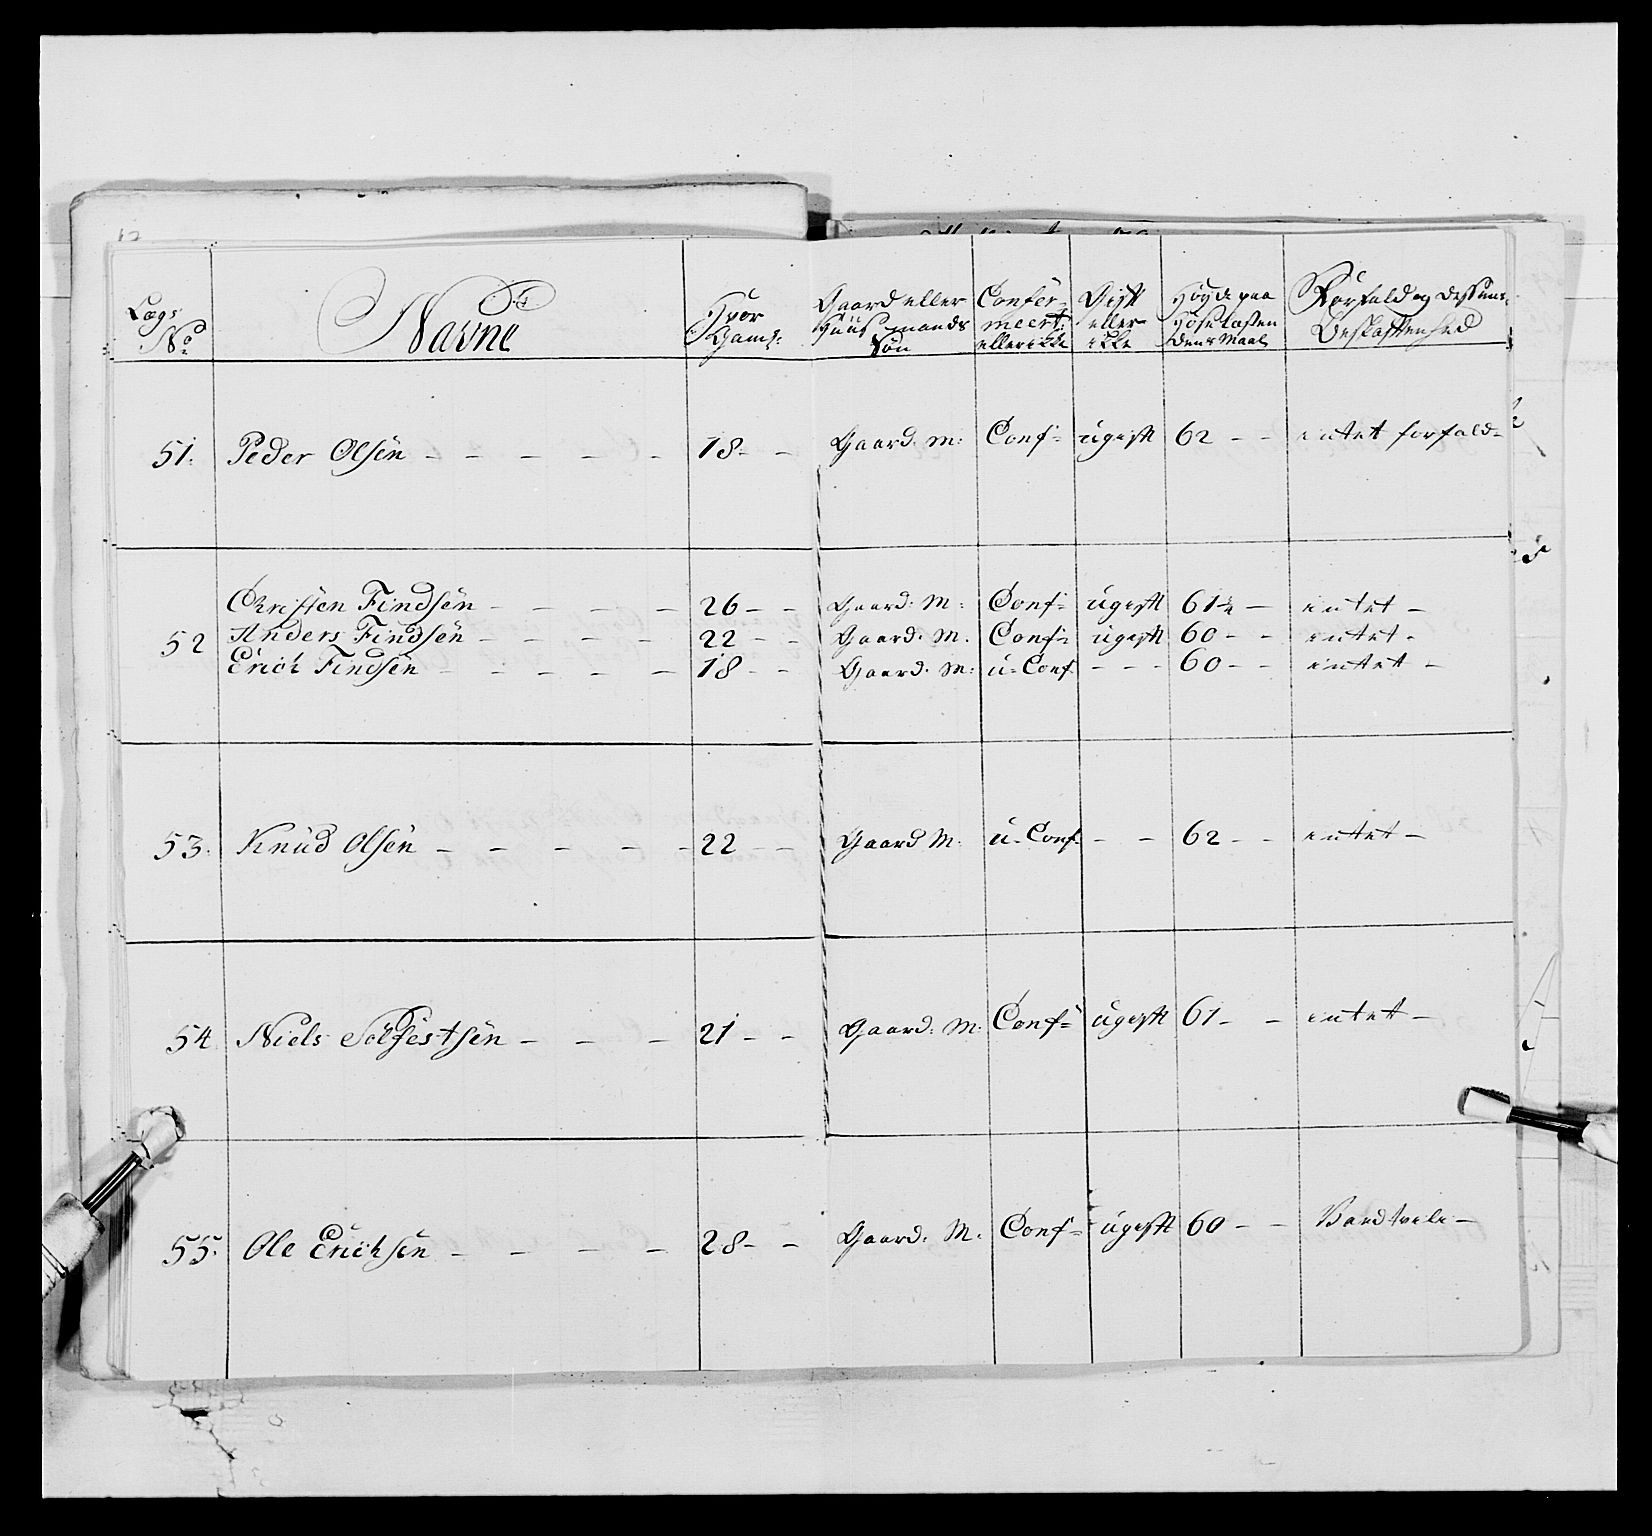 Lægs No Navne Hvor Gaml: Gaard eller Huus mands Søn Confir=meert: eller ikke Gift eller ikke Høyde paa Hose læsten Dens Maal Forfald og Dessens Beskaffenhed
51. Peder Olsen - - - - - 18 - - Gaard. M: Conf= ugift 62 - - intet forfald-
Christen Findsen - - - - 26 - - Gaard. M: Conf= ugift 61½ - intet -
52 Anders Findsen - - - - 22 - - Gaard. M. Conf= ugift 60 - - intet -
Erich Findsen - - - - - 18 - - Gaard. M: u-Conf - - - 60 - - intet -
53. Knud Olsen - - - - - 22 - - Gaard M. u-Conf - - 62 - - intet -
54 Niels Sölfestsen - - - 21 - - Gaard. M: Conf= ugift 61 - - intet -
55. Ole Erichsen - - - - 28 - - Gaard. M. Conf= ugift 60 - -